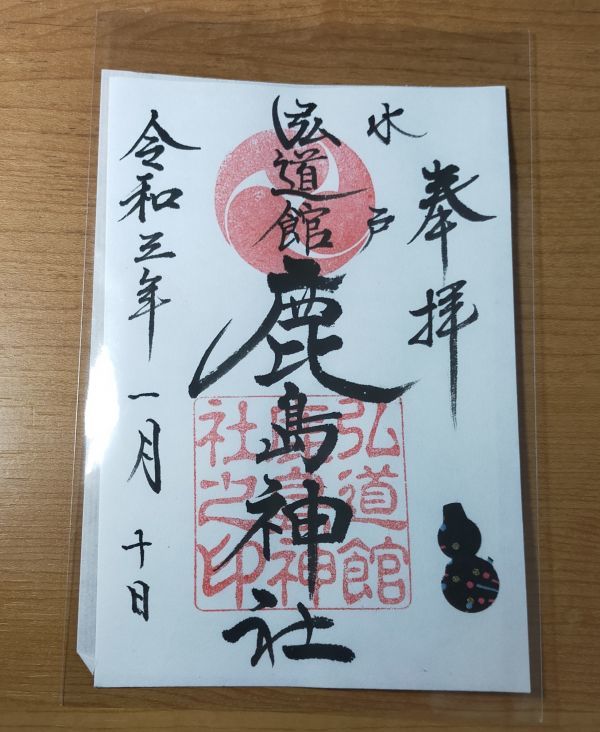 奉拝
水戸
弘道館
鹿島神社
令和三年一月十日
弘道館
鹿島神
社之印